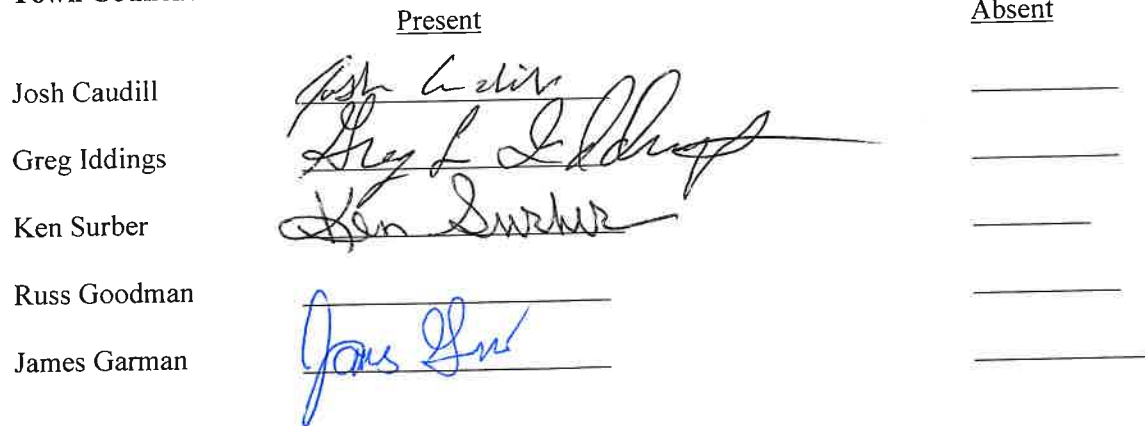 Present Absent
Josh Caudill Josh Caudill
Greg Iddings Greg L Iddings
Ken Surber Ken Surber
Russ Goodman
James Garman James